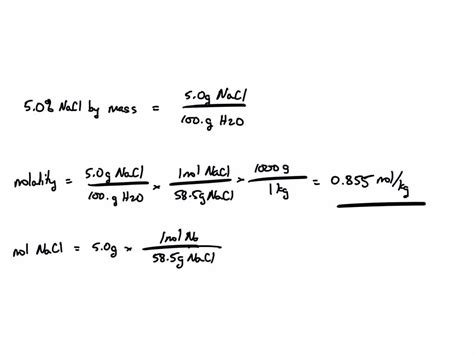 5.0% NaCl by mass = 5.0g NaCl / 100.g H2O
molality = 5.0g NaCl / 100.g H2O × 1mol NaCl / 58.5g NaCl × 1000g / 1kg = 0.855 mol/kg
mol NaCl = 5.0g × 1mol Na / 58.5g NaCl